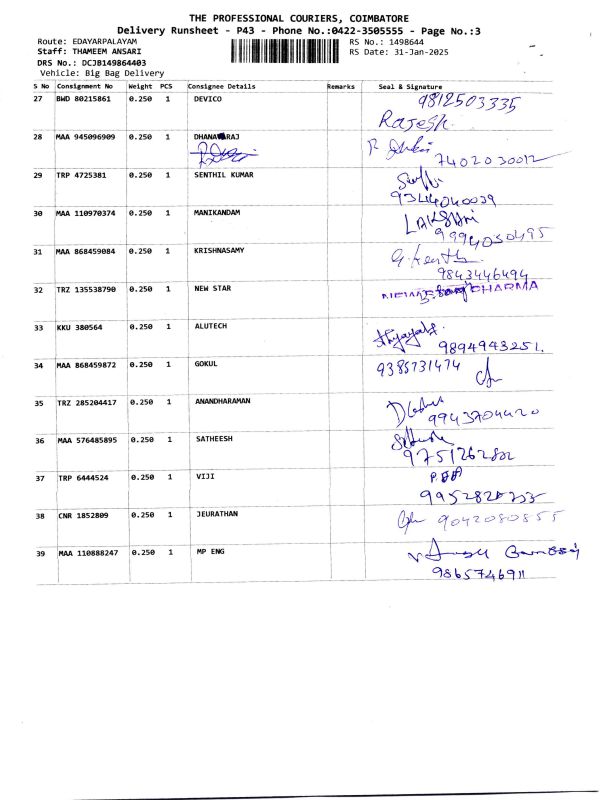 THE PROFESSIONAL COURIERS, COIMBATORE
Delivery Runsheet - P43 - Phone No.:0422-3505555 - Page No.:3
Route: EDAYARPALAYAM RS No.: 1498644
Staff: THAMEEM ANSARI RS Date: 31-Jan-2025
DRS No.: DCJB149864403
Vehicle: Big Bag Delivery
S No Consignment No Weight PCS Consignee Details Remarks Seal & Signature
27 BWD 80215861 0.250 1 DEVICO 9812503335
Rajesh
28 MAA 945096909 0.250 1 DHANAVARAJ
7402030012
29 TRP 4725381 0.250 1 SENTHIL KUMAR
9344040039
30 MAA 110970374 0.250 1 MANIKANDAM LAKSHMI
9994030495
31 MAA 868459084 0.250 1 KRISHNASAMY
9843446494
32 TRZ 135538790 0.250 1 NEW STAR NEW PHARMA
33 KKU 380564 0.250 1 ALUTECH
9894943251.
34 MAA 868459872 0.250 1 GOKUL 9385731474
35 TRZ 285204417 0.250 1 ANANDHARAMAN
9943704420
36 MAA 576485895 0.250 1 SATHEESH
9751262812
37 TRP 6444524 0.250 1 VIJI
9952820735
38 CNR 1852809 0.250 1 JEURATHAN 9042080855
39 MAA 110888247 0.250 1 MP ENG
9865746911